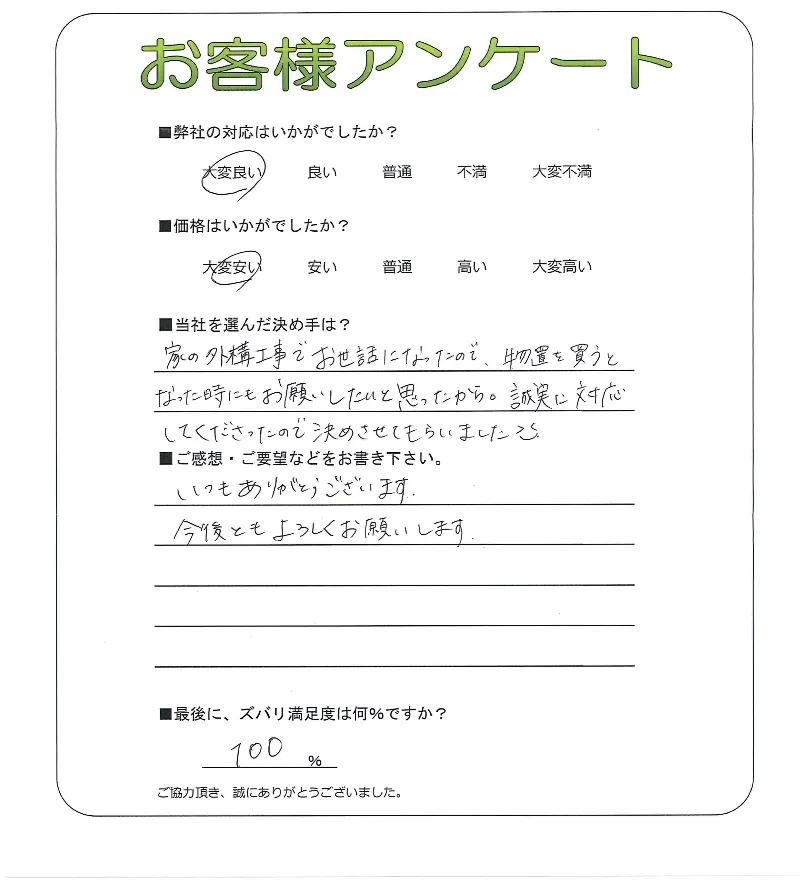 お客様アンケート
■弊社の対応はいかがでしたか？
大変良い 良い 普通 不満 大変不満
■価格はいかがでしたか？
大変安い 安い 普通 高い 大変高い
■当社を選んだ決め手は？
家の外構工事でお世話になったので、物置を買うと
なった時にもお願いしたいと思ったから。誠実に対応
してくださったので決めさせてもらいました
■ご感想・ご要望などをお書き下さい。
いつもありがとうございます.
今後ともよろしくお願いします.
■最後に、ズバリ満足度は何％ですか？
100 %
ご協力頂き、誠にありがとうございました。